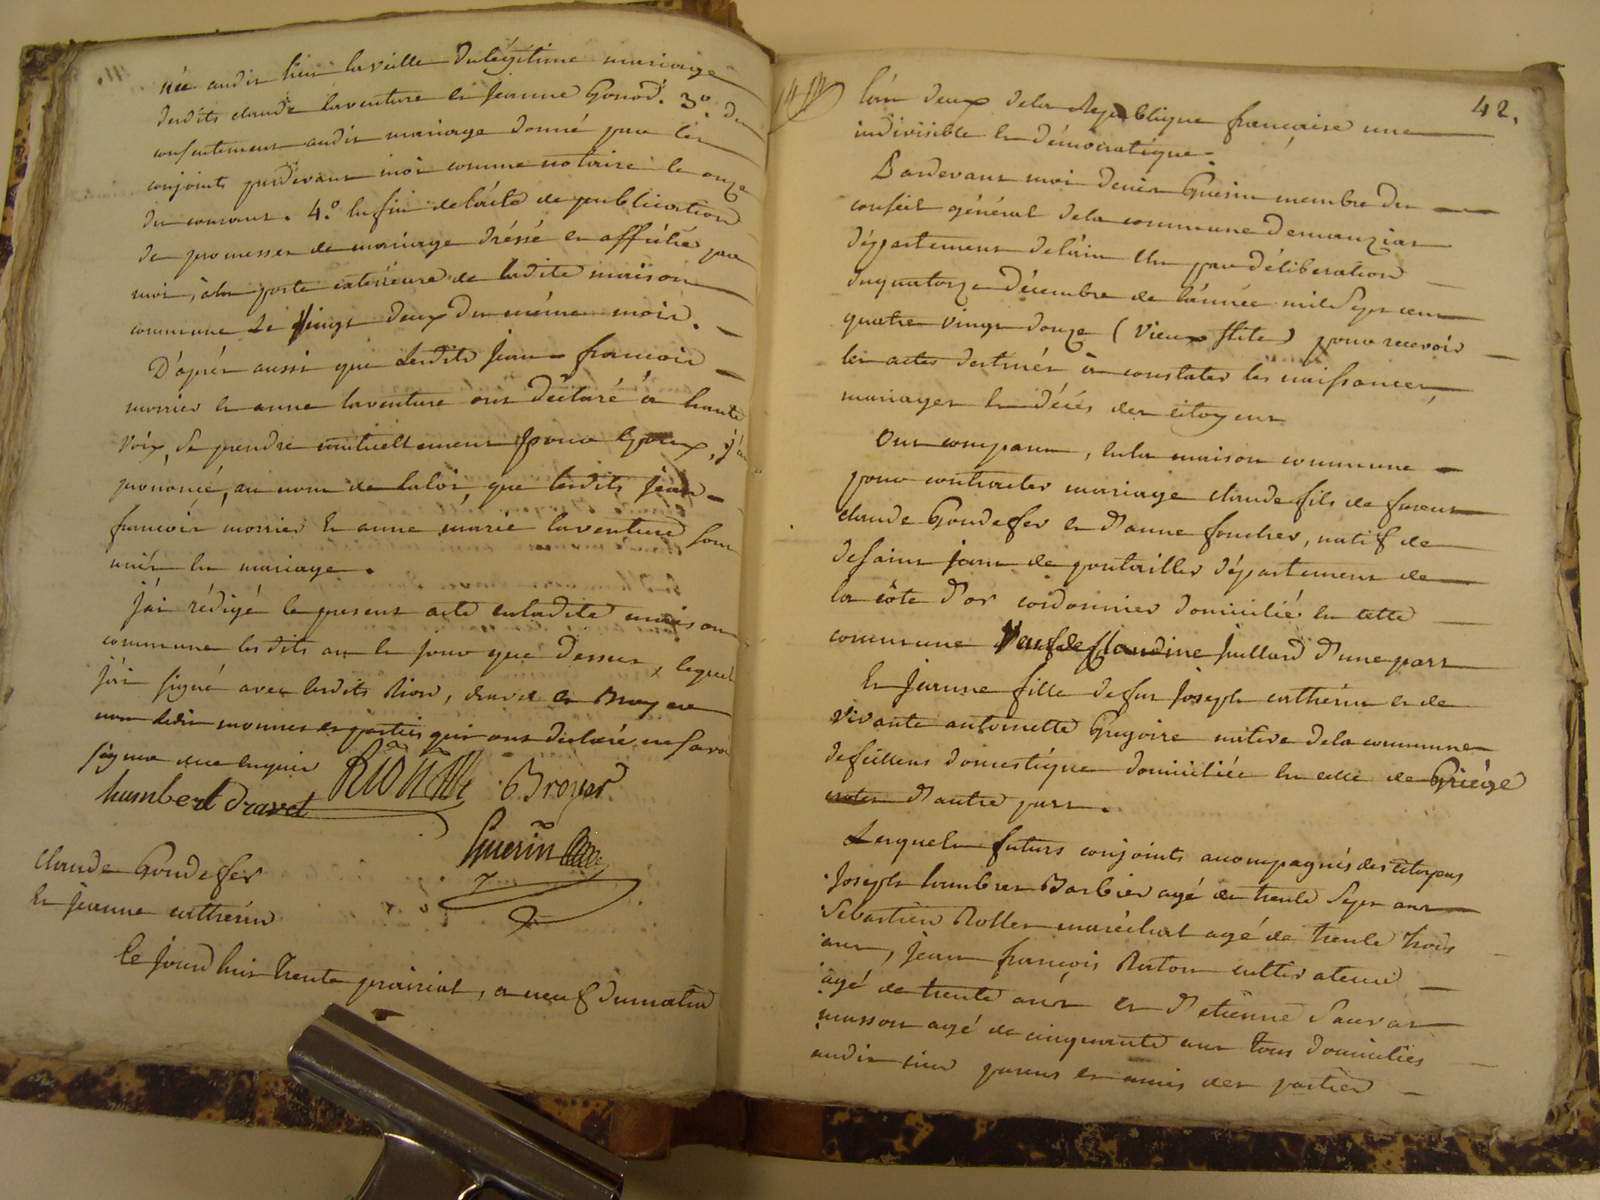 née audit lieu la veille du légitime mariage
desdits claude laventure et jeanne Gonod. 3.º du
consentement audit mariage donné par les
conjoints pardevant moi comme notaire le onze
du courant. 4.º la fin de l'acte de publication
de promesses de mariage dréssé et affiché par
moi, à la porte extérieure de ladite maison
commune le vingt deux du même mois.
D'après aussi que lesdits jean françois
monier et anne laventure ont déclaré à haute
voix, se prendre mutuellement pour Epoux, j'ai
prononcé, au nom de la loi, que lesdits jean
françois monier et anne marie laventure sont
unis en mariage.
j'ai rédigé le present acte en ladite maison
commune lesdits an et jour que dessus, lequel
j'ai signé avec lesdits Rion, dravet et Broyer
non ledit monnet et parties qui ont déclaré ne savoir
signer de ce enquis
humbert dravet Broyer
Guerin
claude Gondefer
et jeanne cattherin
Ce jourd huit trente prairial, a neuf du matin
42.
l'an deux de la République française une
indivisible et démocratique
Pardevant moi denis Guerin membre du
conseil général de la commune de manziat
département de l'ain élu par déliberation
du quatorze décembre de l'année mil sept cent
quatre vingt douze (vieux stile) pour recevoir
les actes destinés à constater les naissances,
mariages et décés des citoyens
Ont comparu, en la maison commune
pour contracter mariage claude fils de
claude Gondefer et d'anne foucher, natif de
de saint jean de pontailler département de
la côte d'or cordonnier domicilié en cette
commune Veuf de Claudine juillard d'une part
Et jeanne fille de feu joseph cattherin et de
vivante antoinette Gregoire native de la commune
de feillens domestique domiciliée en celle de Griège
d'autre part.
Lesquels futurs conjoints accompagnés des citoyens
joseph humbert Barbier agé de trente sept ans
Sebastien Rollet maréchal agé de trente trois
ans, jean françois Raton cultivateur
agé de trente ans et d'etienne Sauvat
masson agé de cinquante ans tous domiciliés
audit lieu parens et amis des parties